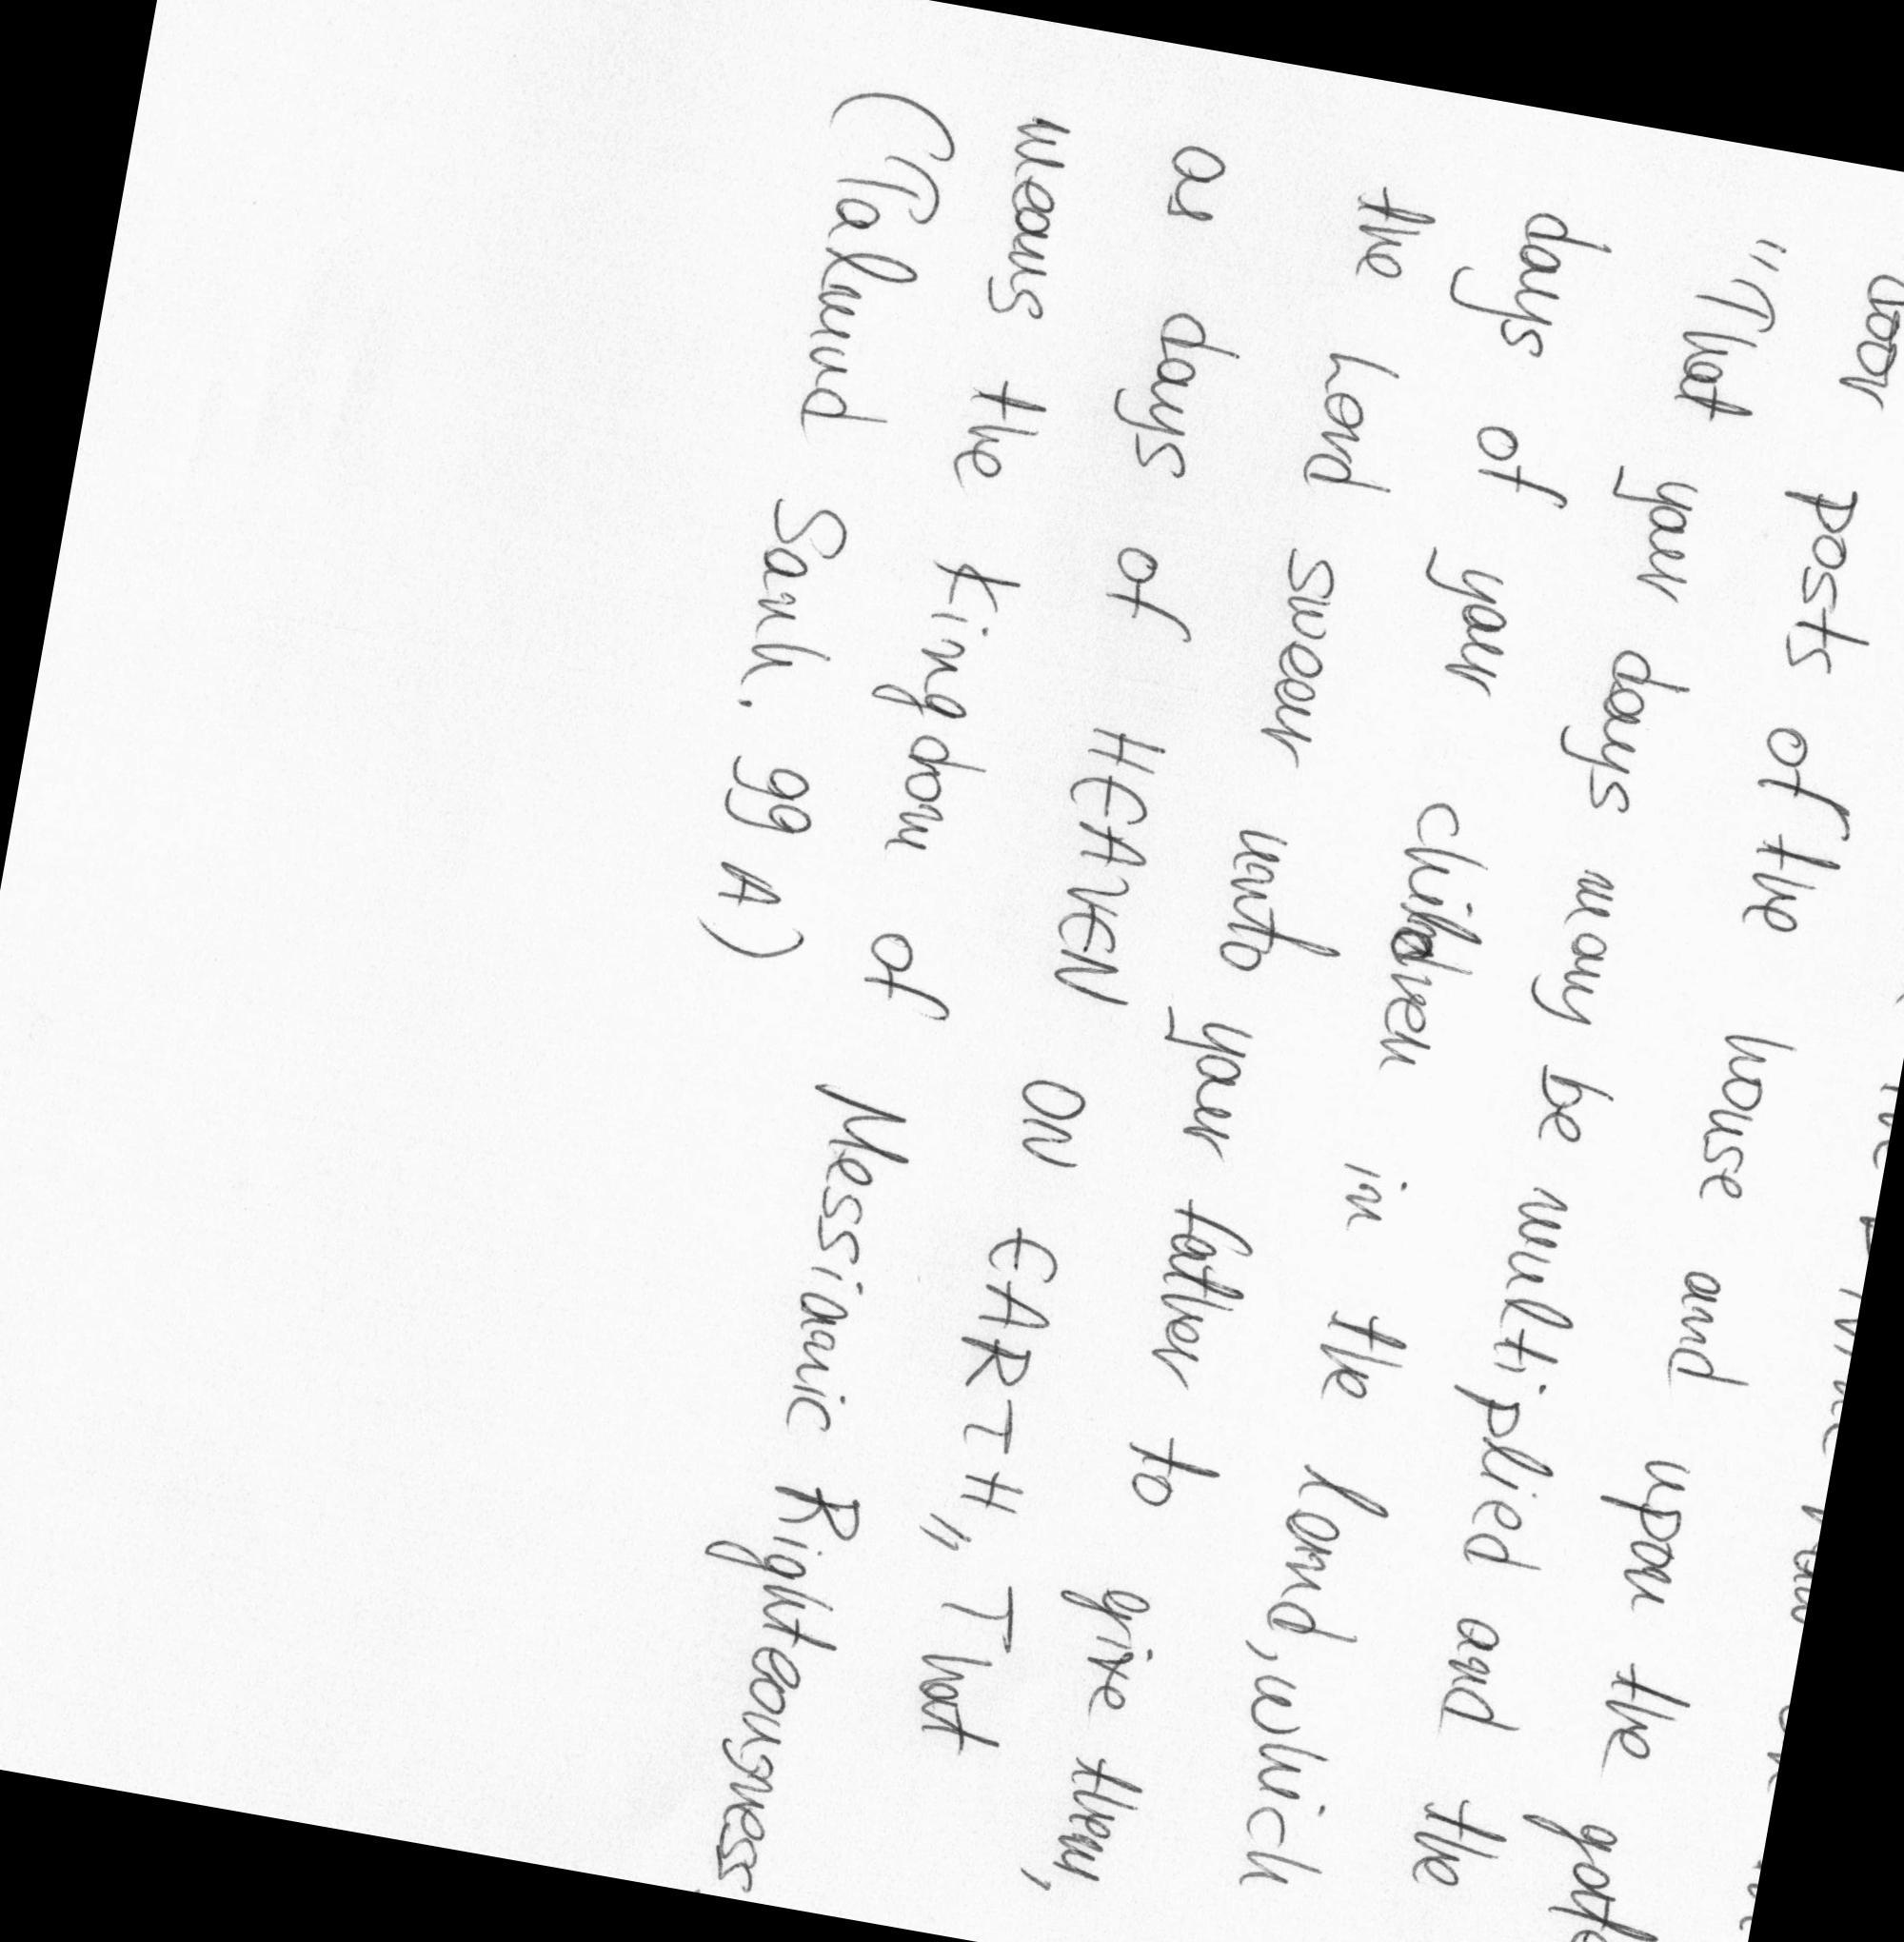 door posts of the house and upon the gate
"That your days may be multiplied and the
days of your children in the land, which
the Lord swear unto your father to give them,
as days of HEAVEN ON EARTH" That
means the kingdom of Messianic Righteousness
(Talmud Sanh. 99 A)